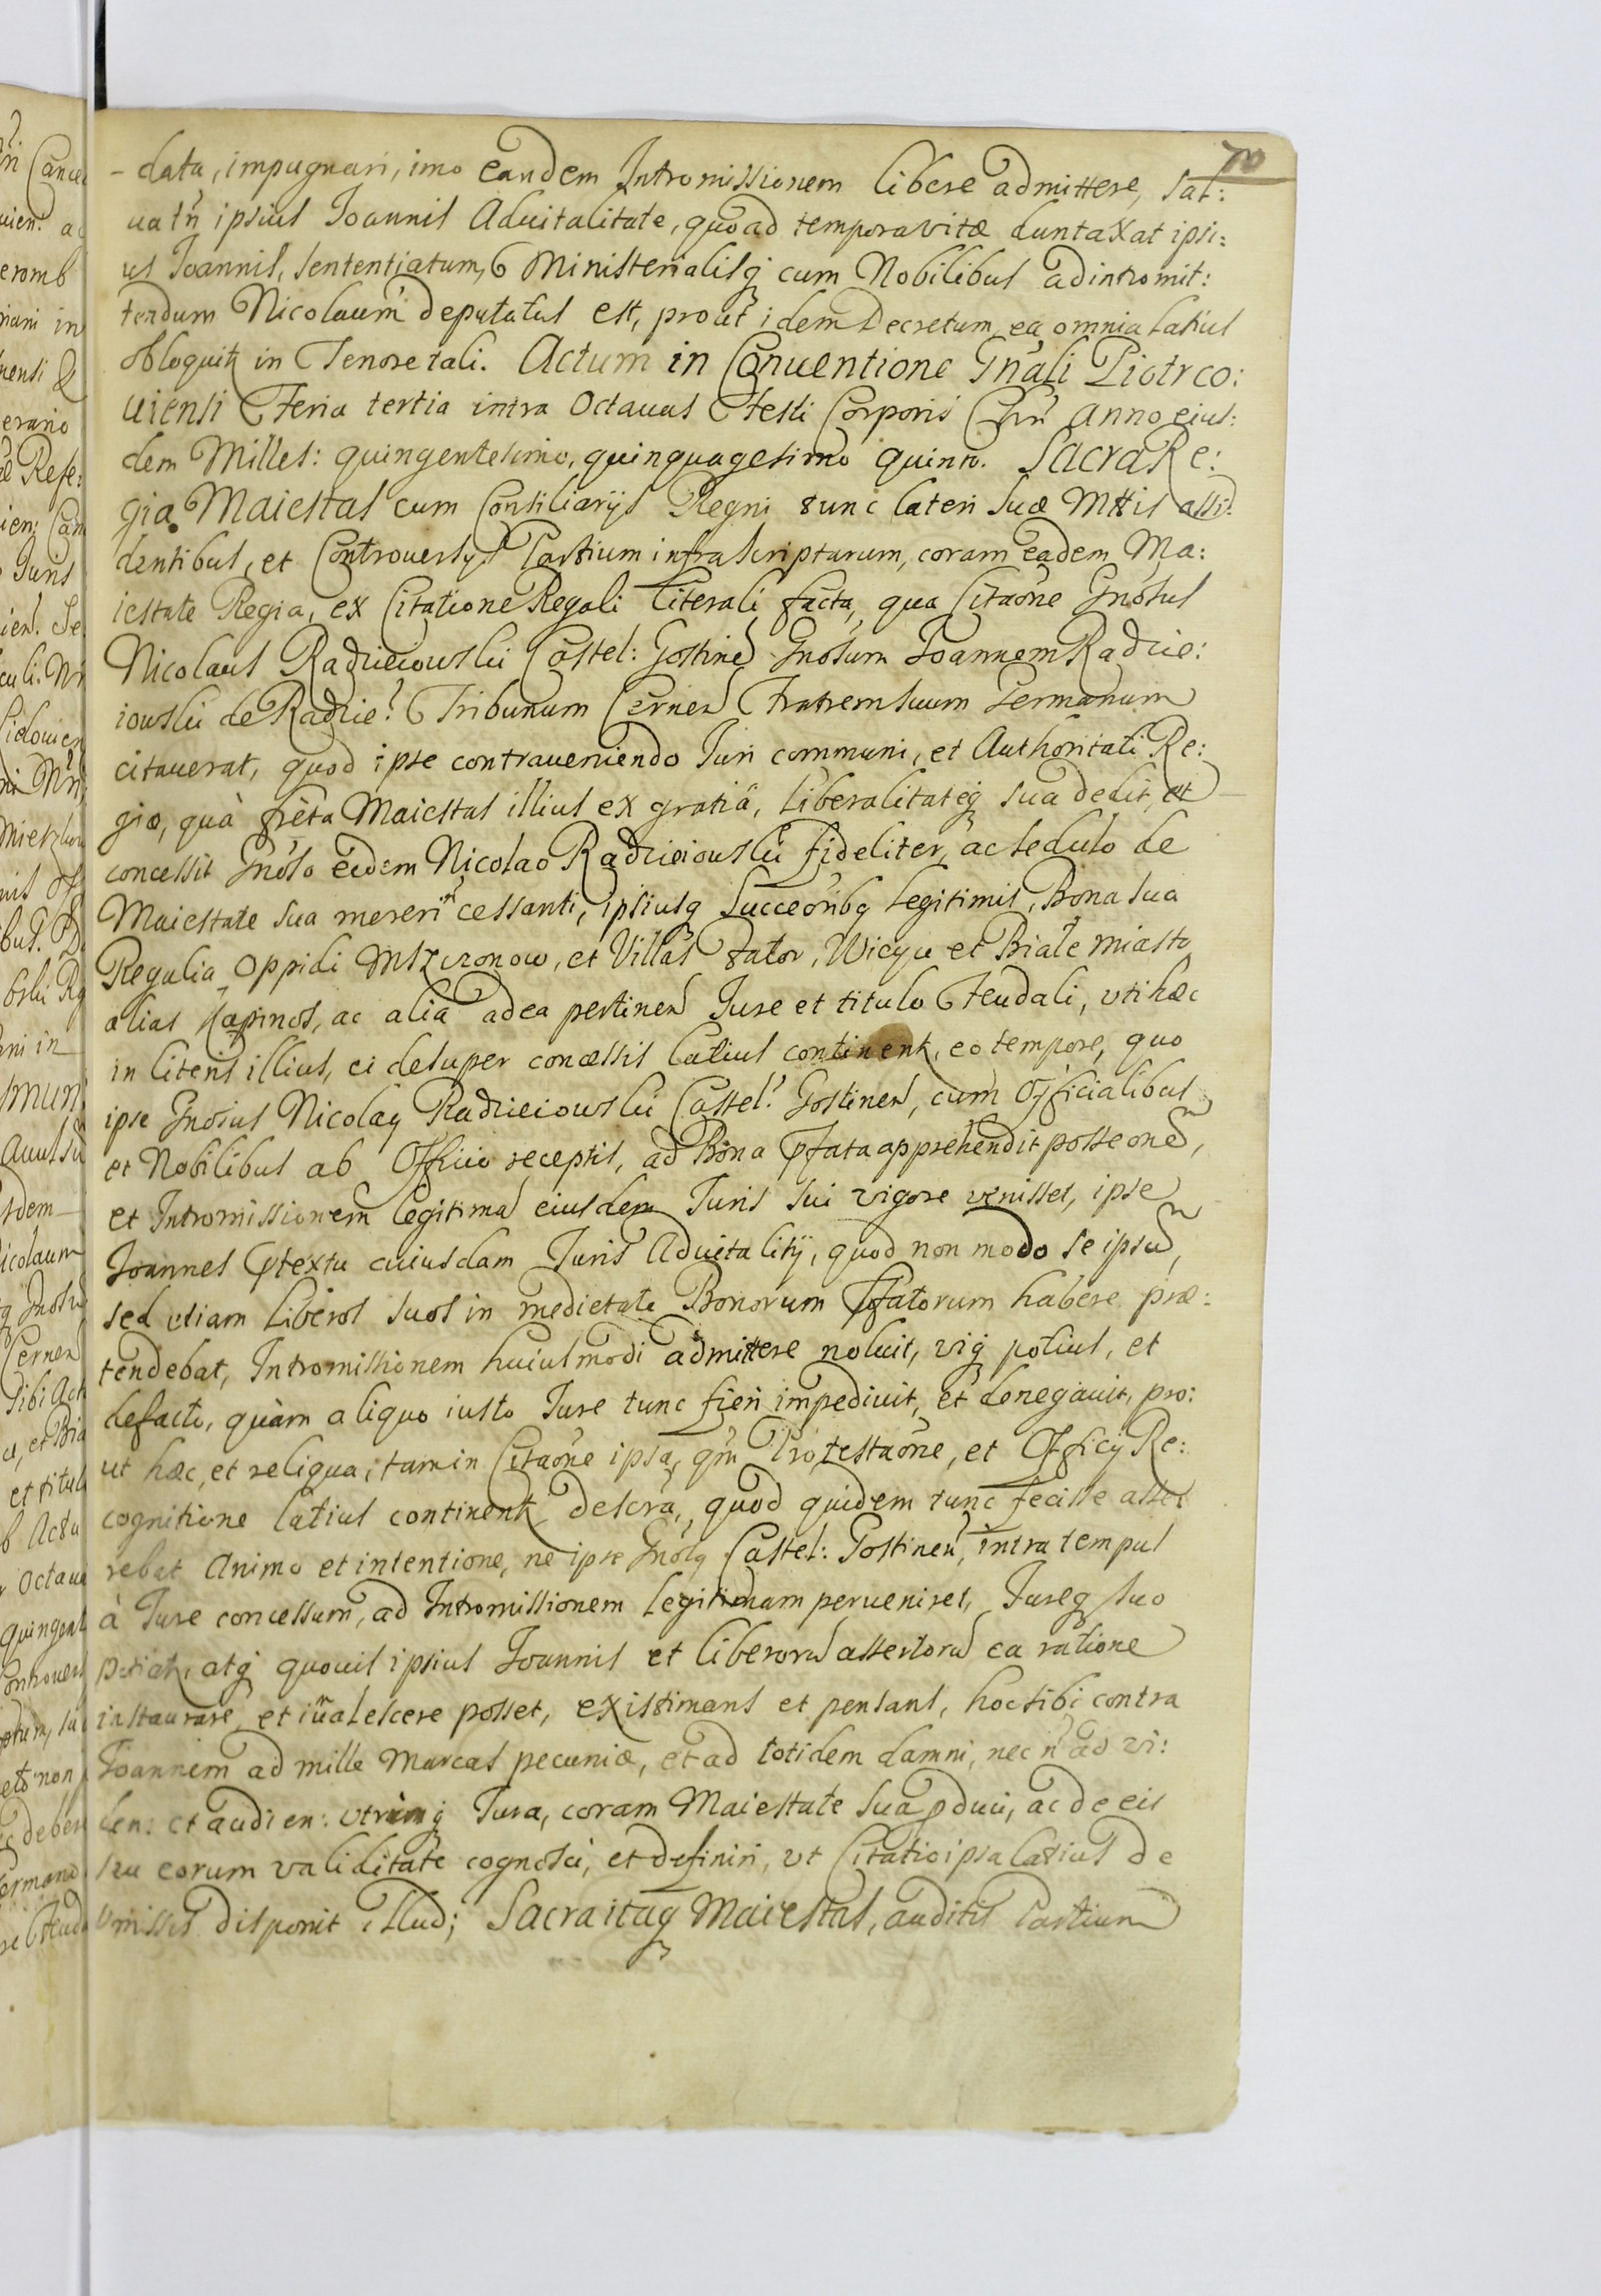 70
- data, impugnari, imo eandem Intromissionem libere admittere, sal:
ua tñ ipsius Joannis Aduitalitate, quoad tempora vitæ duntaxat ipsi:
us Joannis, sententiatum, Ministerialisq cum Nobilibus ad intromit:
tendum Nicolaum deputatus est, prout idem Decretum ea omnia latius
obloquit in Tenore tali. Actum in Conuentione Gnali Piotrco:
uiensi Feria tertia intra Octauas Festi Corporis Chri Anno eius:
dem Milles: quingentesimo, quinquagesimo quinto. Sacra Re:
gia Maiestas cum Consiliarijs Regni tunc lateri Suæ Mttis assi:
dentibus, et Controuersys Partium infrascriptarum, coram eadem Ma:
iestate Regia, ex Citatione Regali literali facta, qua Citaone Gnosus
Nicolaus Radzieiowski Castel: Gostinen Gnosum Joannem Radzie:
iowski de Radzie: Tribunum Cernen Fratrem suum Germanum
citauerat, quod ipse contraueniendo Juri communi, et Authoritati Re:
giæ, quà frèta Maiestas illius ex gratiâ, liberalitateq sua dedit, et
concessit Gnoso eidem Nicolao Radzieiowski fideliter, ac sedulo de
Maiestate sua mereri ñ cessanti, ipsiusq Succeoribq legitimis, Bona sua
Regalia Oppidi Mszczonow, et Villas Zator, Wicye et Biale miasto
alias Kapinos, ac alia ad ea pertinen Jure et titulo Feudali, vti hæc
in literis illius, ei desuper concessis latius continent, eo tempore, quo
ipse Gnosus Nicolaq Radzieiowski Castel: Gostinen, cum Officialibus
et Nobilibus ab Officio receptis, ad Bona pfata apprehendit posseone,
et Intromissionem legitima eiusdem Juris sui vigore venisset, ipse
Joannes ptextu cuiusdam Juris Aduitalitÿ, quod non modo se ipsu,
sed etiam liberos suos in medietate Bonorum pfatorum habere præ:
tendebat, Intromissionem huiusmodi admittere noluit, viq potius, et
defacto, quàm aliquo iusto Jure tunc fieri impediuit, et denegauit, pro:
ut hæc, et reliqua, tam in Citaone ipsa, qm Protestaone, et Officij Re:
cognitione latius continent descra, quod quidem tunc fecisse asse:
rebat Animo et intentione, ne ipse Gnosq Castel: Gostinen, intra tempus
à Jure concessum, ad Intromissionem legitimam perueniret, Jureq suo
atq quouis ipsius Joannis et liberoru assertoru ea ratione
instaurare, et iualescere posset, existimans et pensans, hoc sibi contra
Joannem ad mille Marcas pecuniæ, et ad totidem damni, nec ñ ad vi:
den: et audien: vtrinq Jura, coram Maiestate Sua pduci, ac de eis
seu eorum validitate cognosci, et definiri, vt Citatio ipsa latius de
disponit illud; Sacra itaq Maiestas, auditis Partium